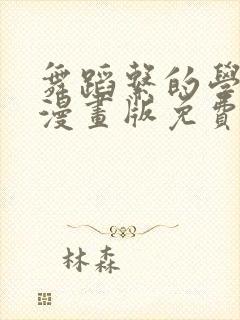 舞蹈繫的學
漫畫版免費
林森